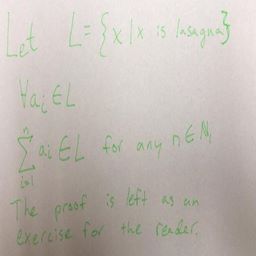 Let L = {x | x is lasagna}
∀aᵢ ∈ L
∑ⁿᵢ₌₁ aᵢ ∈ L for any n ∈ ℕ,
The proof is left as an
exercise for the reader.